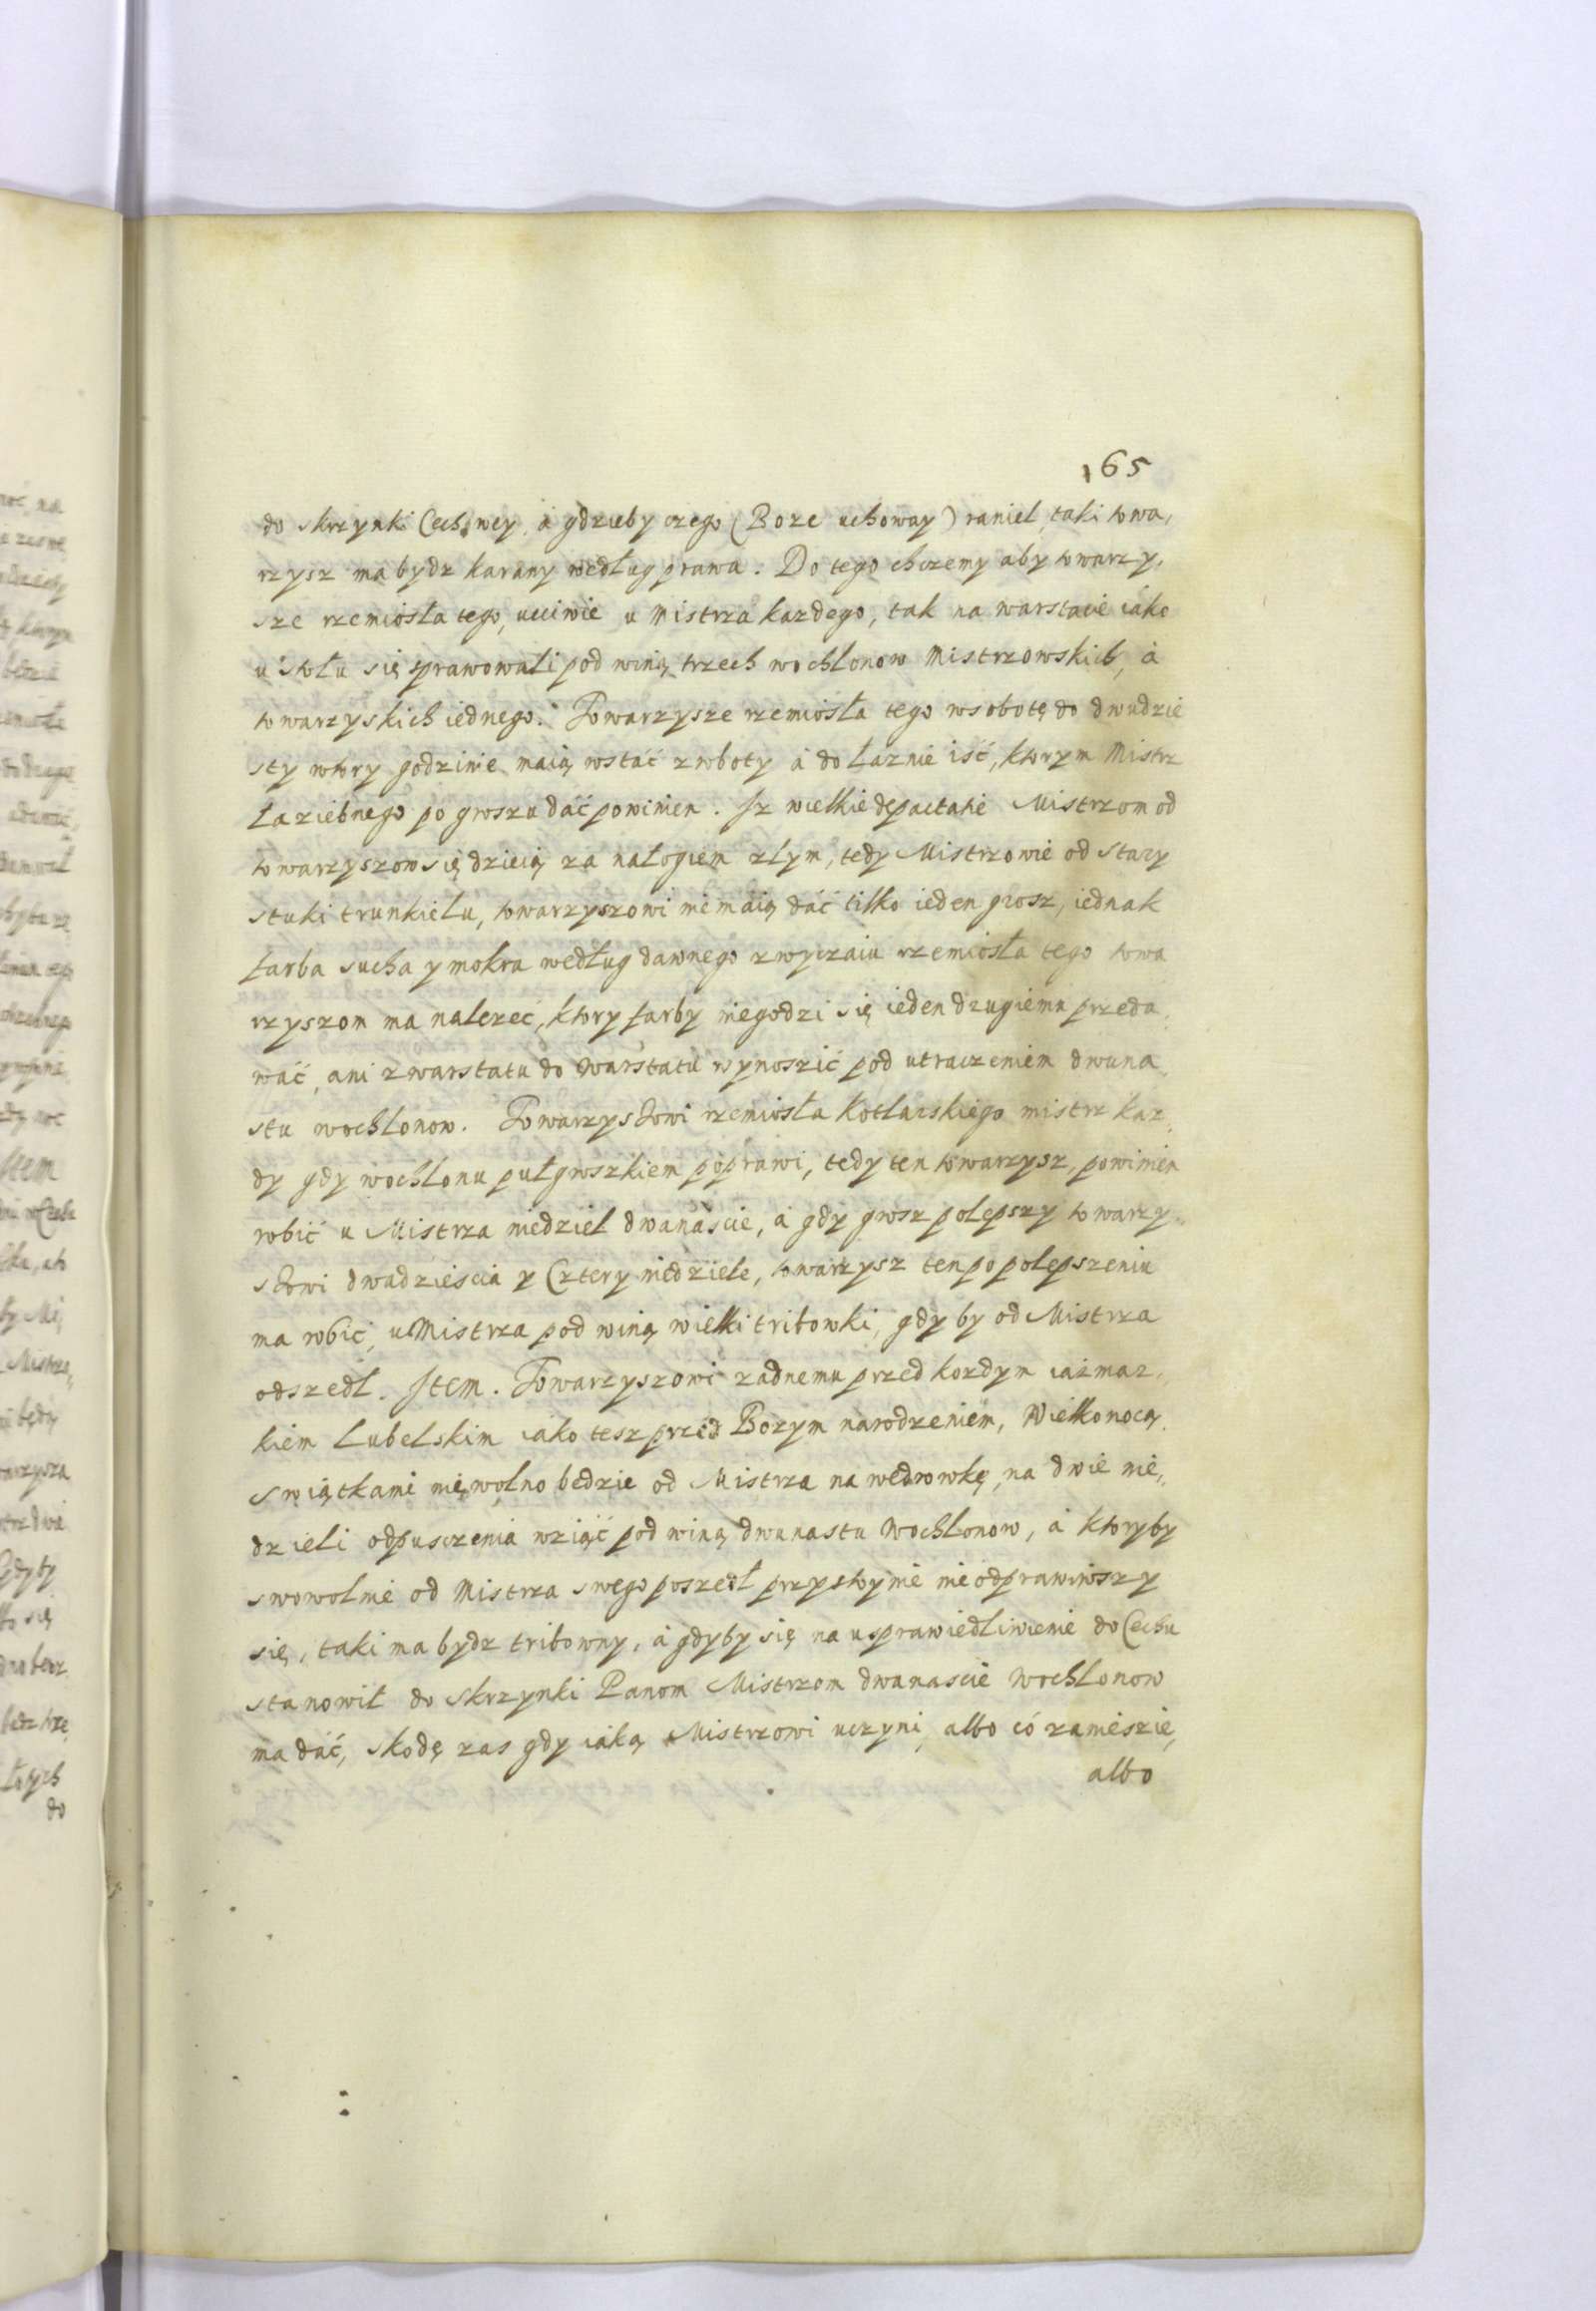 165
do skrzynki Cechowey, á gdzieby czego (Boze uchoway) raniel, taki towa,
rzysz ma bydz karany według prawa. Do tego chczemy aby towarzy,
sze rzemiosła tego, uciwie u Mistrza kazdego, tak na warstacie iako
u stołu się sprawowali pod winą trzech wochlonow Mistrzowskich, á
towarzyskich iednego. Towarzysze rzemiosła tego w sobotę do dwudzie
sty wtory godzinie maią wstać z roboty á do łaznie iść, ktorym Mistrz
łaziebnego po groszu dać powinien. Iz wielkie depactatie Mistrzom od
towarzyszow się dzieią za nałogiem złym, tedy Mistrzowie od stary
stuki trunkielu, towarzyszowi nie maią dać tilko ieden grosz, iednak
farba sucha y mokra według dawnego zwyczaiu rzemiosła tego towa
rzyszom ma nalezeć, ktory farby niegodzi się ieden drugiemu przeda,
wać, ani z warstatu do warstatu wynoszić pod utraczeniem dwuna,
stu wochlonow. Towarzyszowi rzemiosła kotlarskiego mistrz kaz,
dy gdy wochlonu pułgroszkiem poprawi, tedy ten towarzysz, powinien
robić u Mistrza niedziel dwanascie, á gdy grosz polepszy towarzy,
szowi dwadziescia y Cztery niedziele, towarzysz ten po polepszeniu
ma robić, u Mistrza pod winą wielki tribowki, gdy by od Mistrza
odszedl. Item. Towarzyszowi zadnemu przed kozdym iarmar,
kiem Lubelskim iako tesz przed Bozym narodzeniem, Wielkonocą,
swiątkami niewolno bedzie od Mistrza na wedrowkę, na dwie nie,
dzieli odpusczenia wziąć pod winą dwunastu Wochlonow, á ktoryby
swowolnie od Mistrza swego poszedł przystoynie nie odprawiwszy
się, taki ma bydz tribowny, á gdyby się na usprawiedliwienie do Cechu
stanowił do skrzynki Panom Mistrzom dwanascie Wochlonow
ma dáć, skodę zas gdy iaką Mistrzowi uczyni, albo có zamieszie,
albo